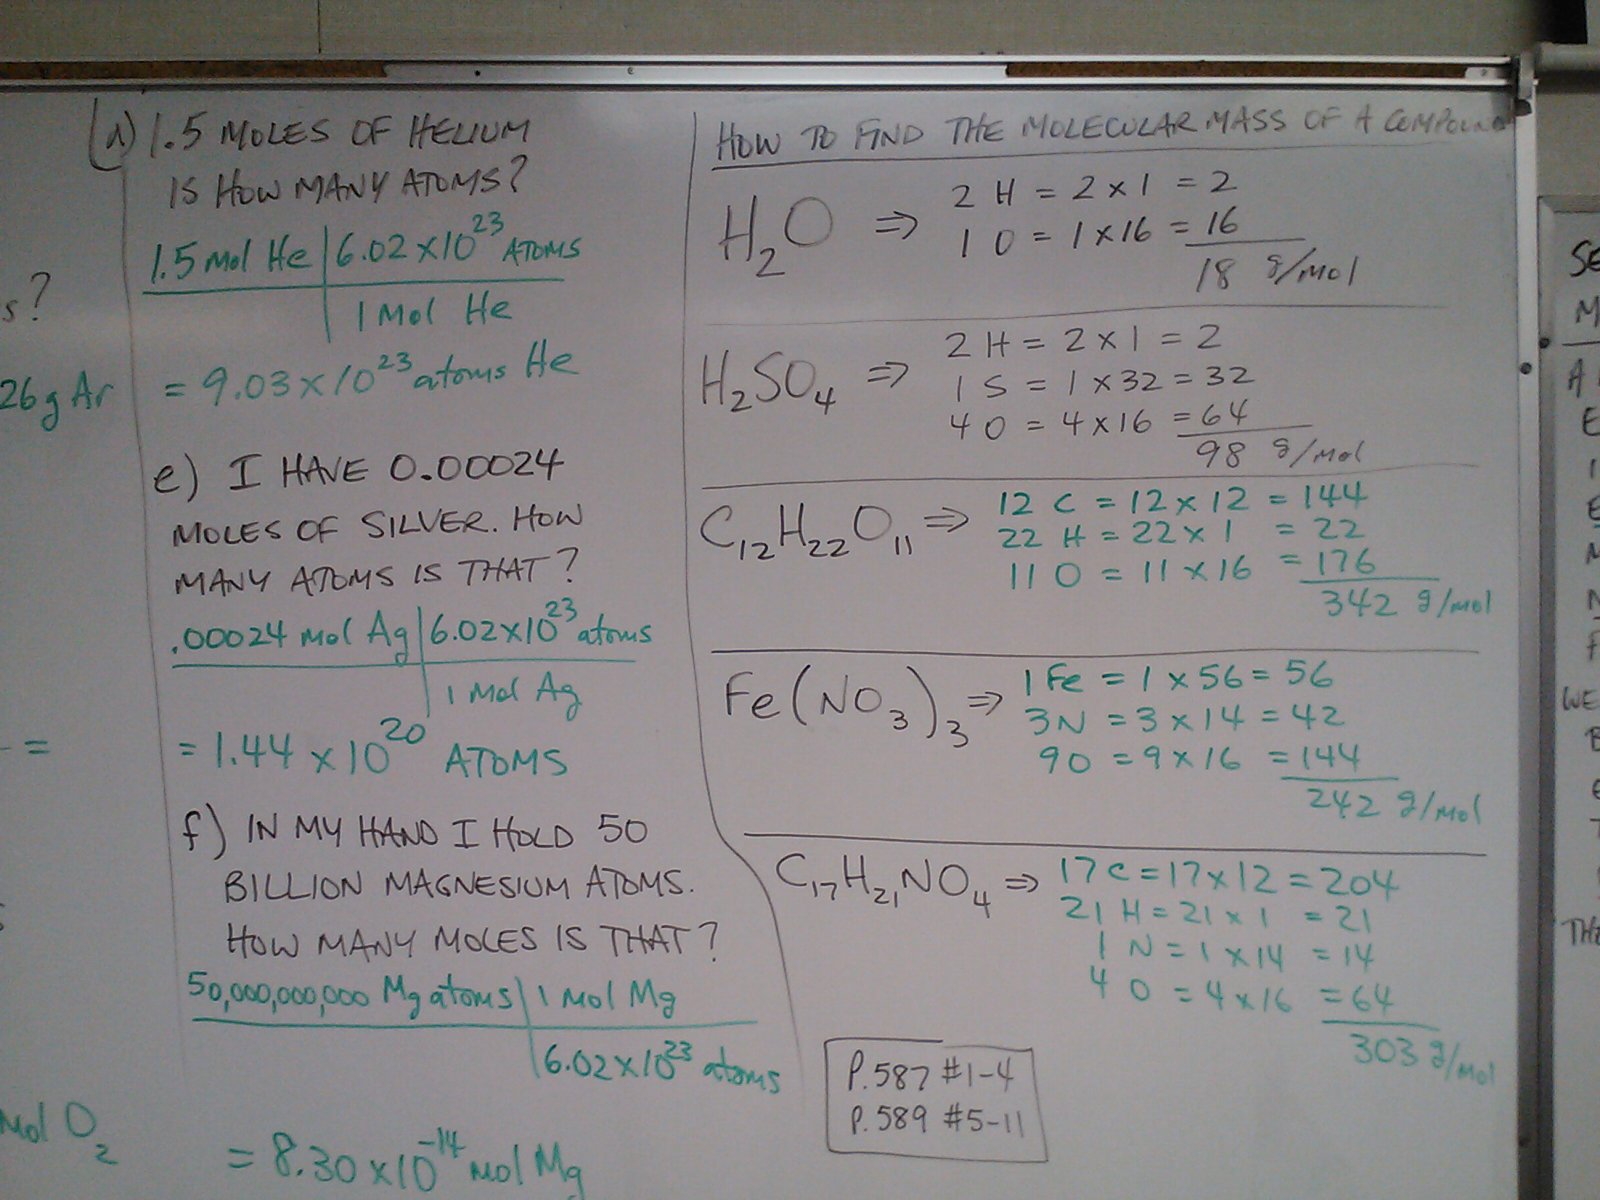 s?
26g Ar
=
mol O₂
d) 1.5 MOLES OF HELIUM
IS HOW MANY ATOMS?
1.5 mol He | 6.02 x 10²³ ATOMS
1 mol He
= 9.03 x 10²³ atoms He
e) I HAVE 0.00024
MOLES OF SILVER. HOW
MANY ATOMS IS THAT?
.00024 mol Ag | 6.02 x 10²³ atoms
1 mol Ag
= 1.44 x 10²⁰ ATOMS
f) IN MY HAND I HOLD 50
BILLION MAGNESIUM ATOMS.
HOW MANY MOLES IS THAT?
50,000,000,000 Mg atoms | 1 mol Mg
6.02 x 10²³ atoms
= 8.30 x 10⁻¹⁴ mol Mg
HOW TO FIND THE MOLECULAR MASS OF A COMPOUND
H₂O ⇒ 2 H = 2 x 1 = 2
1 O = 1 x 16 = 16
18 g/mol
H₂SO₄ ⇒ 2 H = 2 x 1 = 2
1 S = 1 x 32 = 32
4 O = 4 x 16 = 64
98 g/mol
C₁₂H₂₂O₁₁ ⇒ 12 C = 12 x 12 = 144
22 H = 22 x 1 = 22
11 O = 11 x 16 = 176
342 g/mol
Fe(NO₃)₃ ⇒ 1 Fe = 1 x 56 = 56
3 N = 3 x 14 = 42
9 O = 9 x 16 = 144
242 g/mol
C₁₇H₂₁NO₄ ⇒ 17 C = 17 x 12 = 204
21 H = 21 x 1 = 21
1 N = 1 x 14 = 14
4 O = 4 x 16 = 64
303 g/mol
P.587 #1-4
P.589 #5-11
SE
M
A
E
WE
B
THE